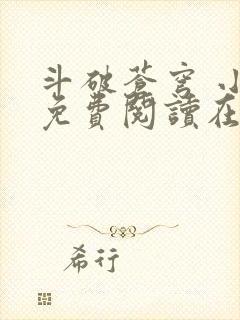 斗破蒼穹 小
免費閱讀在
希行